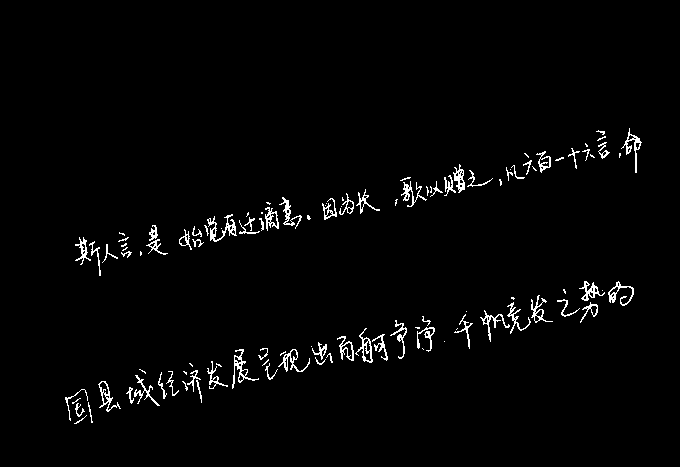 斯人言,是 始觉有迁谪意。因为长 ,歌以赠之,凡六百一十六言,命
国县域经济发展呈现出百舸争净、千帆竞发之势的